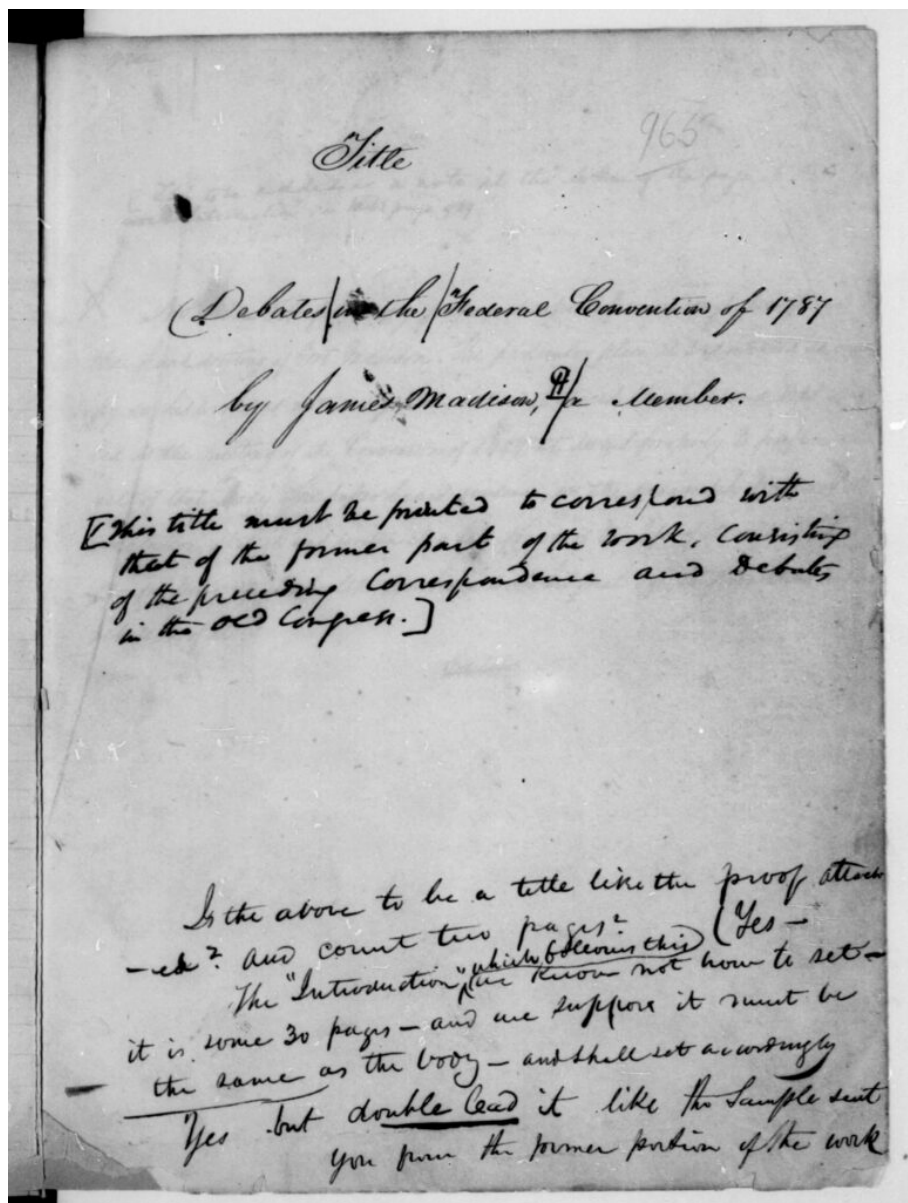 965
Title
Debates in the Federal Convention of 1787
by James Madison, a Member.
[This title must be printed to correspond with
that of the former part of the work, consisting
of the preceding Correspondence and Debates
in the Old Congress.]
Is the above to be a title like the proof attach
-ed? and count two pages? (Yes —
The "Introduction", which follows this, we know not how to set —
it is some 30 pages — and we suppose it must be
the same as the body — and shall set accordingly
Yes but double lead it like the Sample sent
you from the former portion of the work